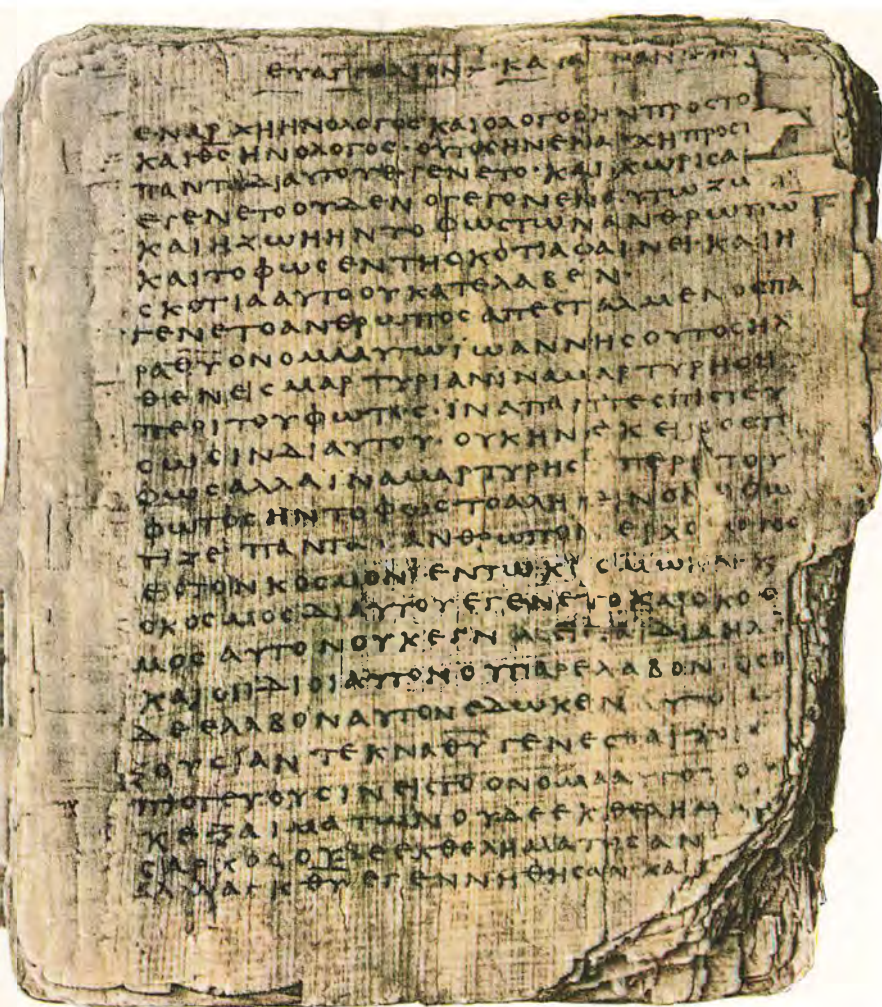 ΕΥΑΓΓΕΛΙΟΝ ΚΑΤΑ
ΕΝΑΡΧΗΗΝΟΛΟΓΟCΚΑΙΟΛΟΓΟCΗΝΠΡΟCΤΟ
ΚΑΙΘ̅C̅ΗΝΟΛΟΓΟC·ΟΥΤΟCΗΝΕΝΑΡΧΗΠΡΟC
ΠΑΝΤΑΔΙΑΥΤΟΥΕΓΕΝΕΤΟ·ΚΑΙΧΩΡΙCΑ
ΕΓΕΝΕΤΟΟΥΔΕΝΟΓΕΓΟΝΕΝΕΝΑΥΤΩΖΩ
ΚΑΙΗΖΩΗΗΝΤΟΦΩCΤΩΝΑΝΘΡΩΠΩ
ΚΑΙΤΟΦΩCΕΝΤΗCΚΟΤΙΑΦΑΙΝΕΙ·ΚΑΙΗ
CΚΟΤΙΑΑΥΤΟΟΥΚΑΤΕΛΑΒΕΝ·
ΓΕΝΕΤΟΑΝΘΡΩΠΟCΑΠΕCΤΑΛΜΕΝΟCΠΑ
ΡΑΘ̅Υ̅ΟΝΟΜΑΑΥΤΩΙΩΑΝΝΗCΟΥΤΟCΗΛ
ΘΕΝΕΙCΜΑΡΤΥΡΙΑΝΙΝΑΜΑΡΤΥΡΗCΗ
ΠΕΡΙΤΟΥΦΩΤΟC·ΙΝΑΠΑΝΤΕCΠΙCΤΕΥ
CΩCΙΝΔΙΑΥΤΟΥ·ΟΥΚΗΝΕΚΕΙΝΟC
ΦΩCΑΛΛΑΙΝΑΜΑΡΤΥΡΗCΗΠΕΡΙΤΟΥ
ΦΩΤΟCΗΝΤΟΦΩCΤΟΑΛΗΘΙΝΟΝΟΦΩ
ΤΙΖΕΙΠΑΝΤΑΑΝΘΡΩΠΟΝΕΡΧΟΜΕΝΟ
ΕΙCΤΟΝΚΟCΜΟΝΕΝΤΩΚΟCΜΩΗΝΚΑΙ
ΟΚΟCΜΟCΔΙΑΥΤΟΥΕΓΕΝΕΤΟΚΑΙΟΚΟC
ΜΟCΑΥΤΟΝΟΥΚΕΓΝΩΕΙCΤΑΙΔΙΑΗΛ
ΚΑΙΟΙΙΔΙΟΙΑΥΤΟΝΟΥΠΑΡΕΛΑΒΟΝΟCΟΙ
ΔΕΕΛΑΒΟΝΑΥΤΟΝΕΔΩΚΕΝΑΥΤΟΙ
ΞΟΥCΙΑΝΤΕΚΝΑΘ̅Υ̅ΓΕΝΕCΘΑΙΤΟΙ
ΠΙCΤΕΥΟΥCΙΝΕΙCΤΟΟΝΟΜΑΑΥΤΟΥΟ
ΚΕΞΑΙΜΑΤΩΝΟΥΔΕΕΚΘΕΛΗΜΑ
CΑΡΚΟCΟΥΔΕΕΚΘΕΛΗΜΑΤΟCΑΝ
ΑΛΛΑΕΚΘ̅Υ̅ΕΓΕΝΝΗΘΗCΑΝΚΑΙ